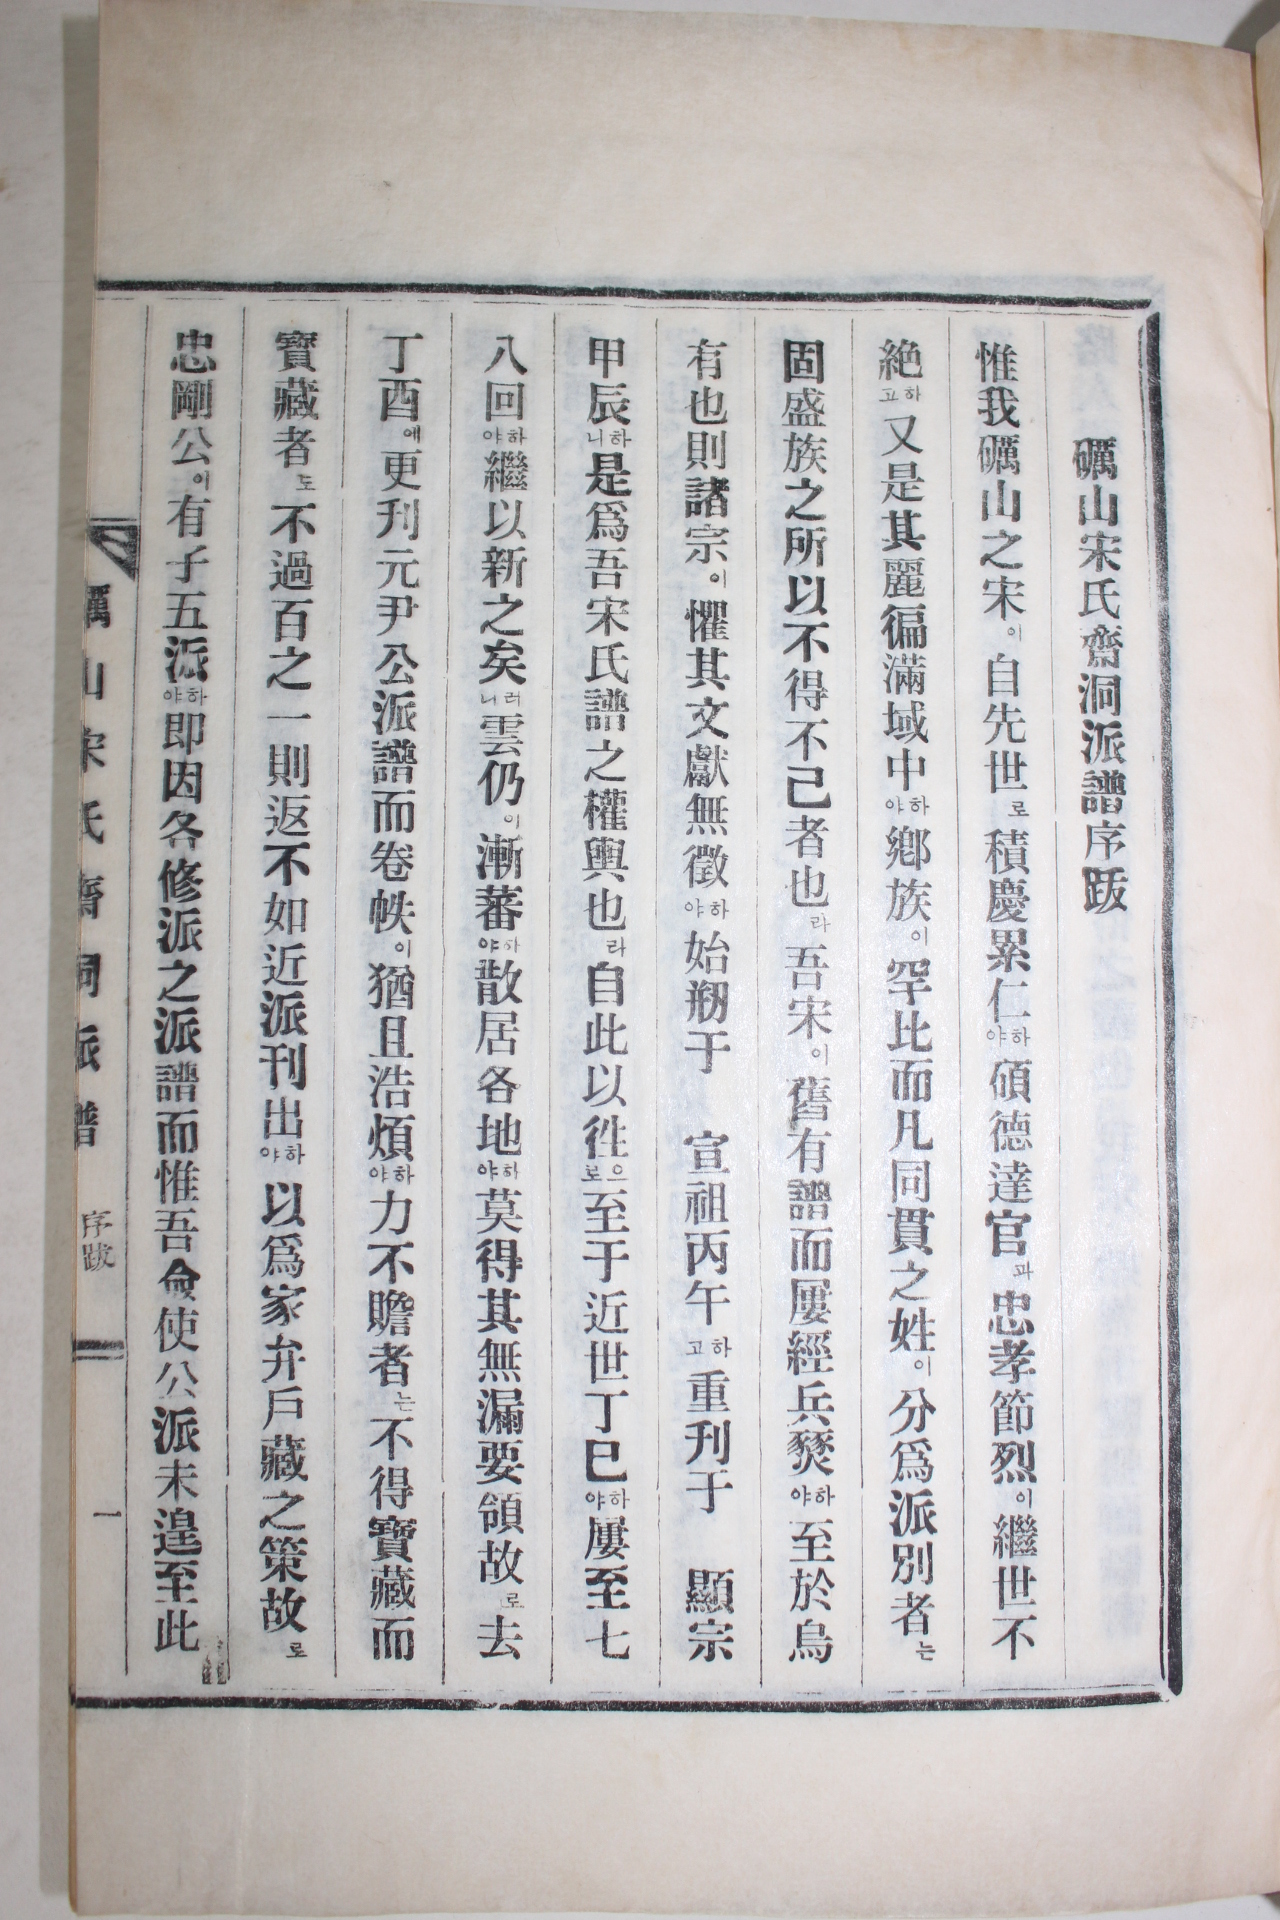 礪山宋氏齋洞派譜序跋
惟我礪山之宋이自先世로積慶累仁하야碩德達官과忠孝節烈이繼世不
絶하고又是其麗徧滿域中하야鄕族이罕比而凡同貫之姓이分爲派別者는
固盛族之所以不得不己者也라吾宋이舊有譜而屢經兵燹하야至於烏
有也則諸宗이懼其文獻無徵하야始刱于 宣祖丙午하고重刊于 顯宗
甲辰하니是爲吾宋氏譜之權輿也라自此以徃으로至于近世丁巳하야屢至七
八回하야繼以新之矣러니雲仍이漸蕃하야散居各地하야莫得其無漏要領故로去
丁酉에更刋元尹公派譜而卷帙이猶且浩煩하야力不贍者는不得寶藏而
寶藏者도不過百之一則返不如近派刊出하야以爲家弁戶藏之策故로
忠剛公이有子五派하야即因各修派之派譜而惟吾僉使公派未遑至此
礪山宋氏齋洞派譜 序跋 一